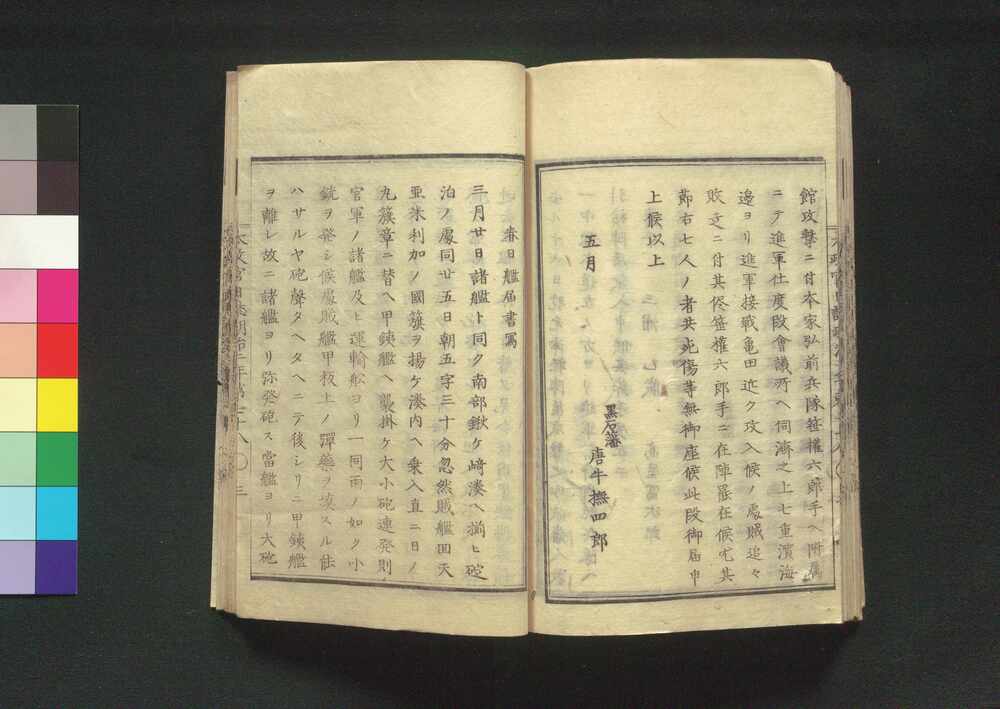 館攻撃ニ付本家弘前兵隊笹權六郎手ヘ附属
ニテ進軍仕度段會議所ヘ伺濟之上七重濱海
邊ヨリ進軍接戰亀田迠ク攻入候ノ處賊追々
敗走ニ付其侭笹權六郎手ニ在陣罷在候尤其
節右七人ノ者共死傷等無御座候此段御届申
上候以上
五月
黒石藩 唐牛撫四郎
春日艦届書寫
三月廿日諸艦ト同ク南部鍬ケ﨑湊ヘ揃ヒ碇
泊ノ處同廿五日朝五字三十分忽然賊艦回天
亜米利加ノ國籏ヲ揚ケ湊内ヘ乗入直ニ日ノ
丸籏章ニ替ヘ甲鉄艦ヘ襲掛ケ大小砲連発則
官軍ノ諸艦及ヒ運輸舩ヨリ一同雨ノ如ク小
銃ヲ発シ候處賊艦甲板上ノ彈藥ヲ焚スル能
ハサルヤ砲聲タヘタヘニテ後シリニ甲鉄艦
ヲ離レ故ニ諸艦ヨリ弥発砲ス當艦ヨリ大砲